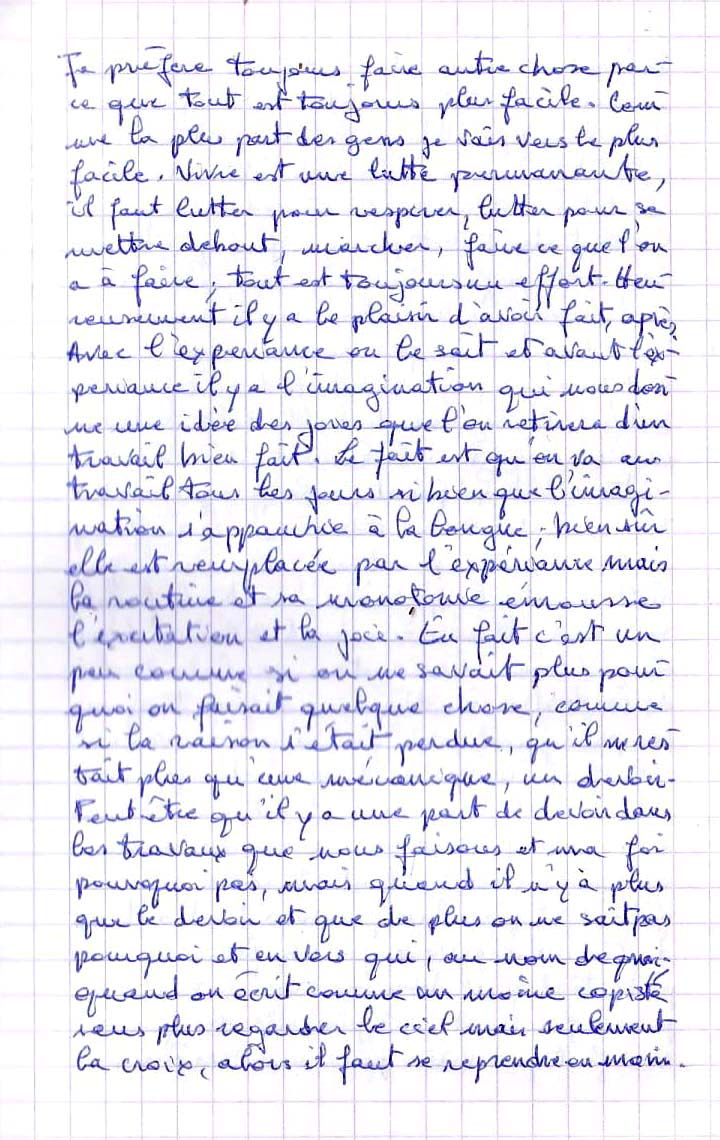 Je préfère toujours faire autre chose par-
ce que tout est toujours plus facile. Com-
me la plus part des gens je vais vers le plus
facile. Vivre est une lutte permanante,
il faut lutter pour respirer, lutter pour se
mettre debout, marcher, faire ce que l'on
a à faire, tout est toujours un effort. Heu-
reusement il y a le plaisir d'avoir fait, après,
Avec l'experiance on le sait et avant l'ex-
periance il y a l'imagination qui nous don-
ne une idée des joies que l'on retirera d'un
travail bien fait. Le fait est qu'on va au
travail tous les jours si bien que l'imagi-
nation s'appauvrie à la longue, bien sûr
elle est remplacée par l'expériance mais
la routine et sa monotonie émousse
l'excitation et la joie. En fait c'est un
peu comme si on ne savait plus pour-
quoi on faisait quelque chose, comme
si la raison s'était perdue, qu'il ne res-
tait plus qu'une mécanique, un devoir.
Peut être qu'il y a une part de devoir dans
les travaux que nous faisons et ma foi
pourquoi pas, mais quand il n'y à plus
que le devoir et que de plus on ne sait pas
pourquoi et en vers qui, au nom de quoi-
quand on écrit comme un moine copiste
sans plus regarder le ciel mais seulement
la croix, alors il faut se reprendre en main.